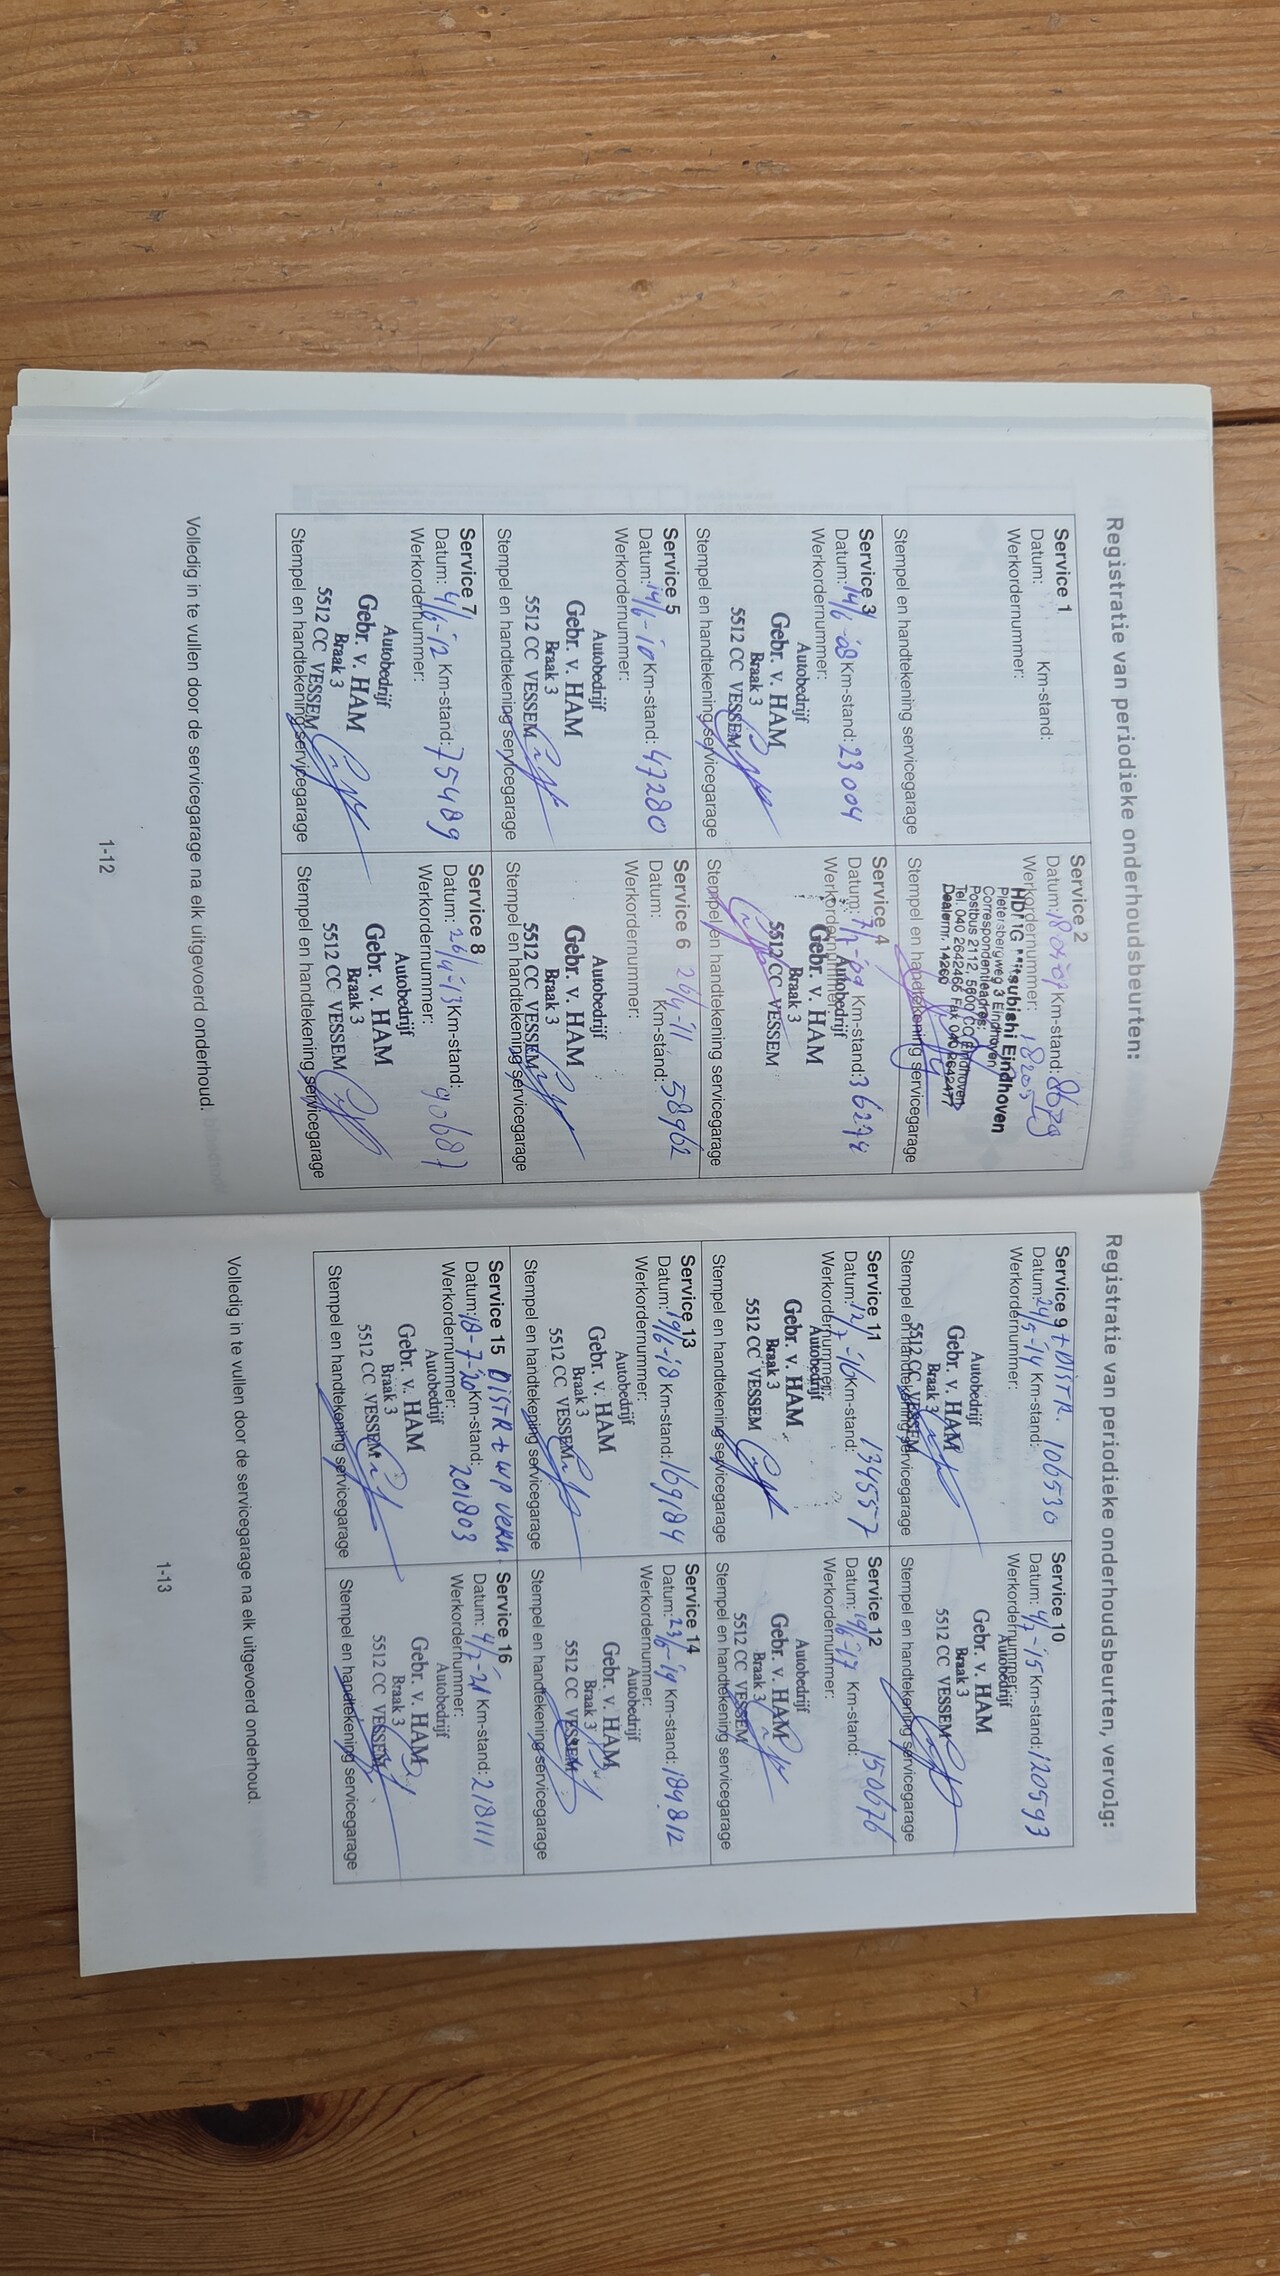 Registratie van periodieke onderhoudsbeurten:
Service 1
Datum: Km-stand:
Werkordernummer:
Stempel en handtekening servicegarage
Service 2
Datum: Km-stand:
Werkordernummer:
Mitsubishi Eindhoven
Pietersbergweg 3 Eindhoven
Correspondentieadres:
Postbus 2112, 5600 CC Eindhoven
Tel. 040 2642466 Fax 040 2642477
Dealernr. 14260
Stempel en handtekening servicegarage
Service 3
Datum: 14/6-'08 Km-stand: 23004
Werkordernummer:
Autobedrijf
Gebr. v. HAM
Braak 3
5512 CC VESSEM
Stempel en handtekening servicegarage
Service 4
Datum: 7/7-'09 Km-stand: 36274
Werkordernummer:
Autobedrijf
Gebr. v. HAM
Braak 3
5512 CC VESSEM
Stempel en handtekening servicegarage
Service 5
Datum: 14/6-'10 Km-stand: 47280
Werkordernummer:
Autobedrijf
Gebr. v. HAM
Braak 3
5512 CC VESSEM
Stempel en handtekening servicegarage
Service 6
Datum: 26/4-'11 Km-stand: 58962
Werkordernummer:
Autobedrijf
Gebr. v. HAM
Braak 3
5512 CC VESSEM
Stempel en handtekening servicegarage
Service 7
Datum: 4/6-'12 Km-stand: 75489
Werkordernummer:
Autobedrijf
Gebr. v. HAM
Braak 3
5512 CC VESSEM
Stempel en handtekening servicegarage
Service 8
Datum: 26/4-'13 Km-stand: 90687
Werkordernummer:
Autobedrijf
Gebr. v. HAM
Braak 3
5512 CC VESSEM
Stempel en handtekening servicegarage
Volledig in te vullen door de servicegarage na elk uitgevoerd onderhoud.
1-12
Registratie van periodieke onderhoudsbeurten, vervolg:
Service 9 + DISTR.
Datum: 24/5-'14 Km-stand: 106530
Werkordernummer:
Autobedrijf
Gebr. v. HAM
Braak 3
5512 CC VESSEM
Stempel en handtekening servicegarage
Service 10
Datum: 4/7-'15 Km-stand: 120593
Werkordernummer:
Autobedrijf
Gebr. v. HAM
Braak 3
5512 CC VESSEM
Stempel en handtekening servicegarage
Service 11
Datum: 12/7-'16 Km-stand: 134557
Werkordernummer:
Autobedrijf
Gebr. v. HAM
Braak 3
5512 CC VESSEM
Stempel en handtekening servicegarage
Service 12
Datum: 19/6-'17 Km-stand: 150676
Werkordernummer:
Autobedrijf
Gebr. v. HAM
Braak 3
5512 CC VESSEM
Stempel en handtekening servicegarage
Service 13
Datum: 19/6-'18 Km-stand: 169184
Werkordernummer:
Autobedrijf
Gebr. v. HAM
Braak 3
5512 CC VESSEM
Stempel en handtekening servicegarage
Service 14
Datum: 23/6-'19 Km-stand: 189812
Werkordernummer:
Autobedrijf
Gebr. v. HAM
Braak 3
5512 CC VESSEM
Stempel en handtekening servicegarage
Service 15 DISTR + WP VERN.
Datum: 18-7-'20 Km-stand: 201803
Werkordernummer:
Autobedrijf
Gebr. v. HAM
Braak 3
5512 CC VESSEM
Stempel en handtekening servicegarage
Service 16
Datum: 4/7-'21 Km-stand: 218111
Werkordernummer:
Autobedrijf
Gebr. v. HAM
Braak 3
5512 CC VESSEM
Stempel en handtekening servicegarage
Volledig in te vullen door de servicegarage na elk uitgevoerd onderhoud.
1-13